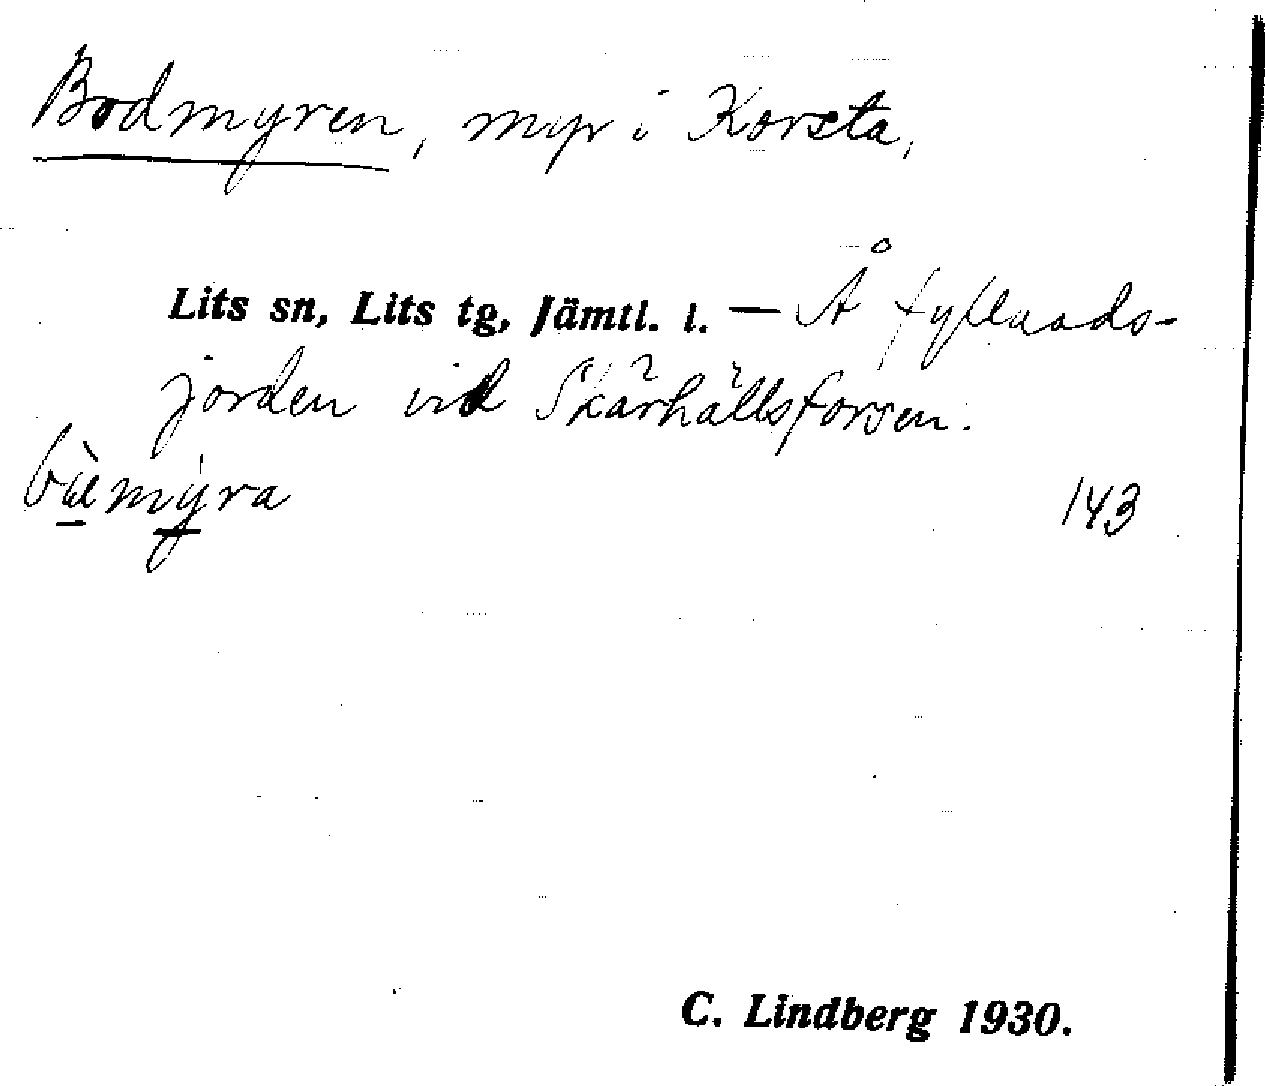 Bodmyren, myr i Korsta,
Lits sn, Lits tg, Jämtl. l. — Å fyllnads-
jorden vid Skärhällsforsen.
myra
143
C. Lindberg 1930.